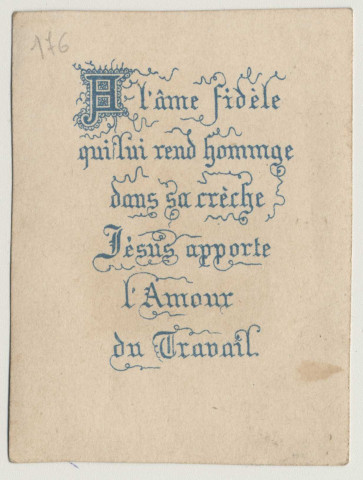 176
A l'âme fidèle
qui lui rend hommage
dans sa crèche
Jésus apporte
l'Amour
du Travail.